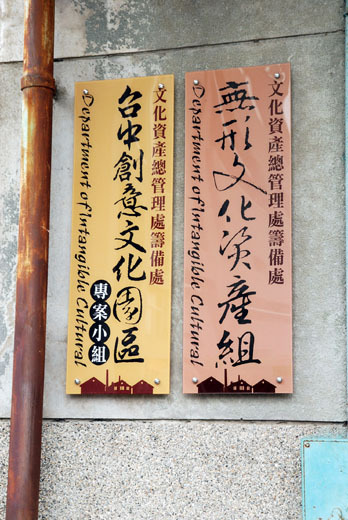 文化資產總管理處籌備處
無形文化資產組
Department of Intangible Cultural
文化資產總管理處籌備處
台中創意文化園區
專案小組
Department of Intangible Cultural